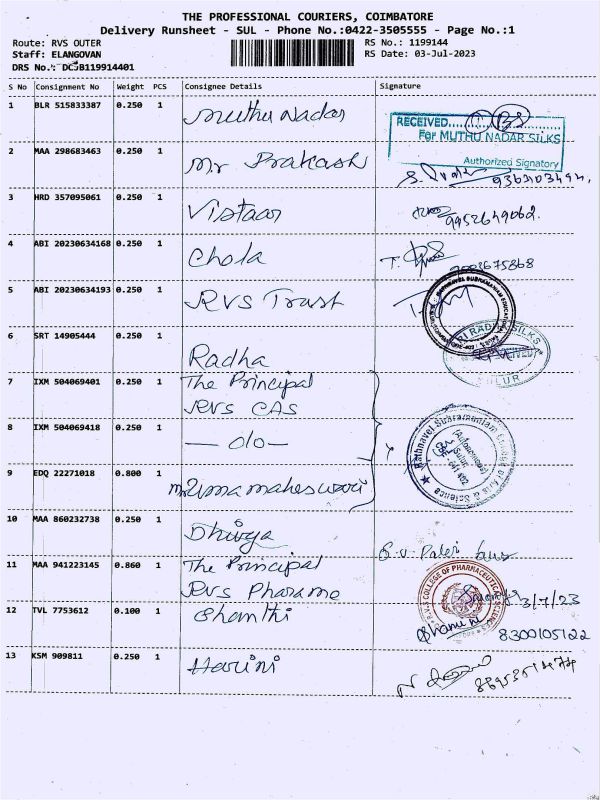 THE PROFESSIONAL COURIERS, COIMBATORE
Delivery Runsheet - SUL - Phone No.:0422-3505555 - Page No.:1
Route: RVS OUTER RS No.: 1199144
Staff: ELANGOVAN RS Date: 03-Jul-2023
DRS No.: DCSB119914401
S No Consignment No Weight PCS Consignee Details Signature
1 BLR 515833387 0.250 1 Muthu Nadar
RECEIVED
For MUTHU NADAR SILKS
Authorized Signatory
2 MAA 298683463 0.250 1 Mr Prakash
3 HRD 357095061 0.250 1 Vistaar 9952649062.
4 ABI 20230634168 0.250 1 Chola T.
5 ABI 20230634193 0.250 1 RVS Trast
6 SRT 14905444 0.250 1 Radha
SRI RADHA SILKS
SULUR
7 IXM 504069401 0.250 1 The Principal
RVS CAS
8 IXM 504069418 0.250 1 — do —
Rathnavel Subramaniam College of Arts & Science
(Autonomous)
Sulur
641 402
9 EDQ 22271018 0.800 1 Mr Uma maheswari
10 MAA 860232738 0.250 1 Dhivya
11 MAA 941223145 0.860 1 The Principal
RVS Pharame
R.V.S COLLEGE OF PHARMACEUTICAL SCIENCES
3/7/23
12 TVL 7753612 0.100 1 Bhanthi
8300105122
13 KSM 909811 0.250 1 Harini